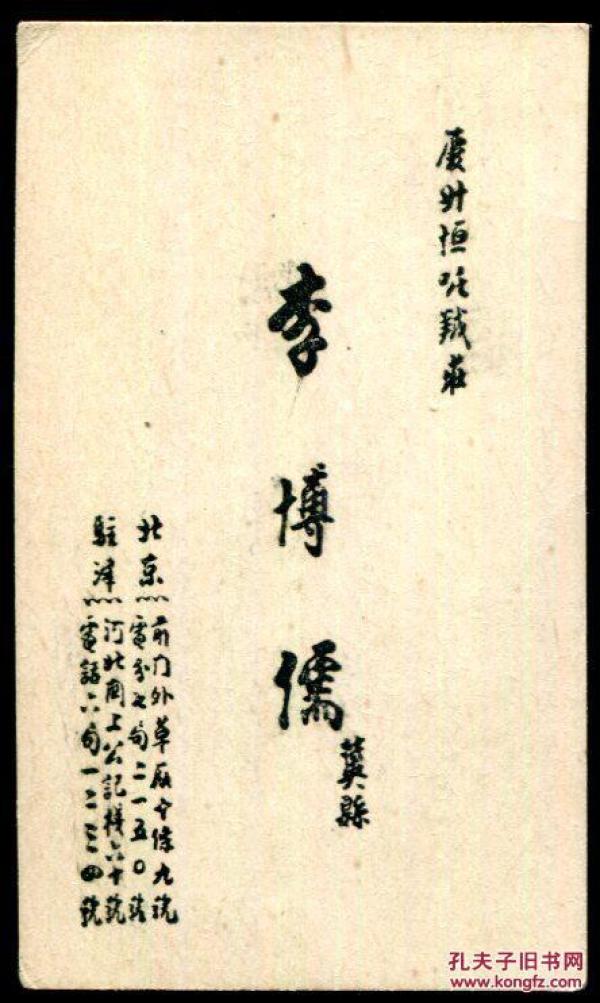 慶升恒羢莊
李博儒
冀縣
北京
前门外草厰十條九號
電話七局二一五〇號
駐津
河北關上公記棧六十號
電話六局一二三四號
孔夫子旧书网
www.kongfz.com